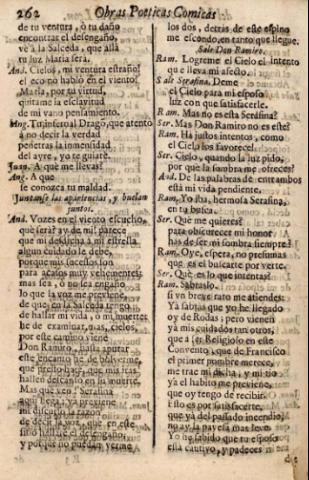 262 Obras Poeticas Comicas
de tu ventura, ò tu daño
encontrar el desengaño,
vè à la Salceda, que allà
tu luz Maria serà.
And. Cielos, mi ventura estraño!
el eco no hablò en el viento?
Maria, por tu virtud,
quitame la esclavitud
de mi vano pensamiento.
Ang. Tu, infernal Dragò, que atento
à no decir la verdad
penetras la inmensidad
del ayre, yo te guiarè.
Juan. A què me llevas?
Ang. A que
se conozca tu maldad.
Juntanse las apariencias, y buelan
juntos.
And. Vozes en el viento escucho,
què serà? ay de mi! parece
que mi desdicha à mi estrella
algun cuidado le debe,
porque mis sucessos son
para acasos muy vehementes,
mas sea, ò no sea engaño
lo que la voz me previene,
de que en la Salceda
he de hallar mi vida, ò mi muerte,
he de examinar, mas, cielos,
por este camino viene
Don Ramiro, hasta apurar
este encanto he de bolverme,
que presto harè, que mis iras
hallen descanso en su muerte.
Mas què veo? Serafina
aqui llega, ya previene
mi discurso la razon
de decir la voz, que en este
sitio hallare el desengaño,
y porque no puedan verme
los dos, detràs de este espino
me escondo, en tanto que llegue.
Sale Don Ramiro.
Ram. Logreme el Cielo el intento
que lleva mi afecto.
Sale Serafina. Deme
el Cielo para mi esposo
luz con que satisfacerle.
Ram. Mas no es esta Serafina?
Ser. Mas Don Ramiro no es este?
Ram. Ha justos intentos, como
el Cielo los favorece!
Ser. Cielo, quando la luz pido,
por què la sombra me ofreces?
And. De las palabras de entrambos
està mi vida pendiente.
Ram. Yo iba, hermosa Serafina,
en tu busca.
Ser. Què me quieres?
para obscurecer mi honor
has de ser mi sombra siempre?
Ram. Oye, espera, no presumas
que es el buscarte por verte.
Ser. Què es lo que intentas?
Ram. Sabràslo,
si un breve rato me atiendes:
Ya sabràs que yo he llegado
oy de Rodas; pero vienen
yà mis cuidados tan otros,
que à ser Religioso en este
Convento, que de Francisco
el primer nombre merece,
me trae mi dicha, y mi tio
yà el habito me previene,
que oy tengo de recibir.
Esto es por satisfacerte,
que yà del passado incendio,
no ay la pavesa mas leve.
Yo he sabido que tu esposo
està cautivo, y padeces